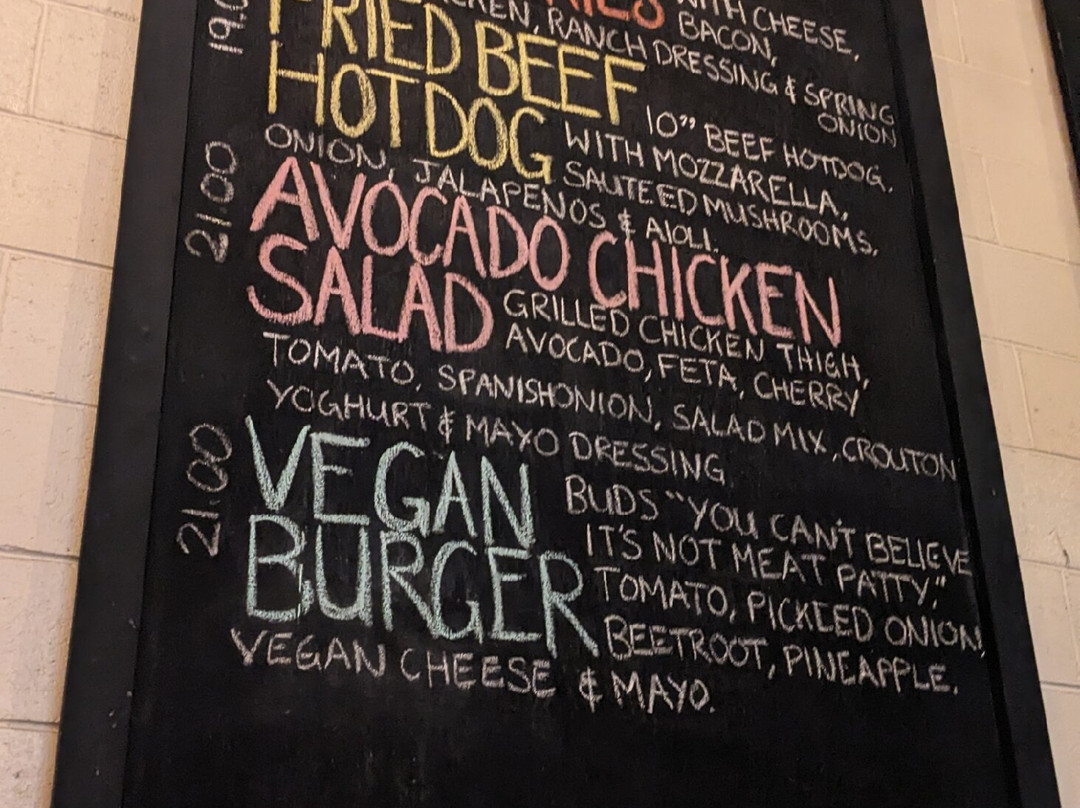 WITH CHEESE,
BACON,
RANCH DRESSING & SPRING
ONION
19.0
FRIED BEEF
HOTDOG
10" BEEF HOTDOG,
WITH MOZZARELLA,
SAUTEED MUSHROOMS,
ONION, JALAPENOS & AIOLI.
21.00
AVOCADO CHICKEN
SALAD
GRILLED CHICKEN THIGH,
AVOCADO, FETA, CHERRY
TOMATO, SPANISHONION, SALAD MIX, CROUTON
YOGHURT & MAYO DRESSING
21.00
VEGAN
BURGER
BUDS "YOU CAN'T BELIEVE
IT'S NOT MEAT PATTY,"
TOMATO, PICKLED ONION,
BEETROOT, PINEAPPLE.
VEGAN CHEESE & MAYO.